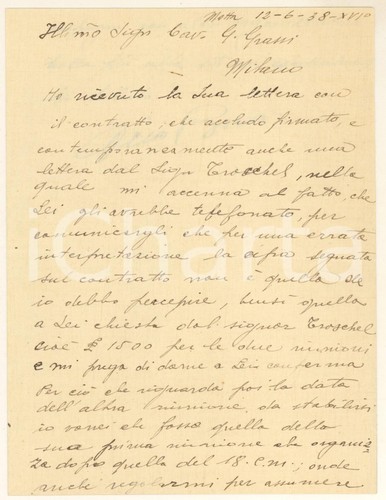 Motta 12-6-38-XVIº
Ill.mo Sigr Cav. G. Grassi
Milano
Ho ricevuto la Sua lettera con
il contratto, che accludo firmato, e
contemporaneamente anche una
lettera dal Sigr Troschel, nella
quale mi accenna al fatto, che
Lei gli avrebbe telefonato, per
comunicargli che per una errata
interpretazione la cifra segnata
sul contratto non è quella che
io debbo percepire, bensì quella
a Lei chiesta dal signor Troschel
cioè £ 1500 per le due riunioni
e mi prega di darne a Lei conferma
Per ciò che riguarda poi la data
dell'altra riunione, da stabilirsi
io vorrei che fosse quella della
sua prima riunione che organiz
za dopo quella del 18. c.m.; onde
anche regolarmi per assumere
iCharta